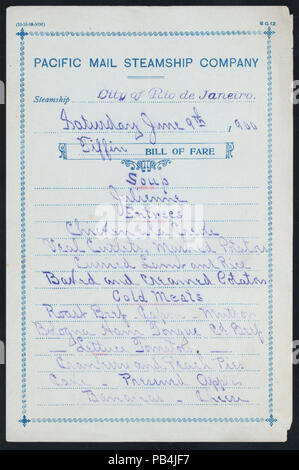 PACIFIC MAIL STEAMSHIP COMPANY
Steamship City of Rio de Janeiro.
Saturday June 9th, 1900
Tiffin BILL OF FARE
Soup
Julienne
Entrees
Chicken
Veal Cutlets Mashed Potatoes
Curried Lamb and Rice
Baked and Creamed Potatoes
Cold Meats
Roast Beef Mutton
Bologna Ham Tongue Cd Beef
Lettuce Tomatoes
Cranberry and Peach Pies
Cake - Preserved Apples
Bananas - Cheese
alamy
PB4JF7